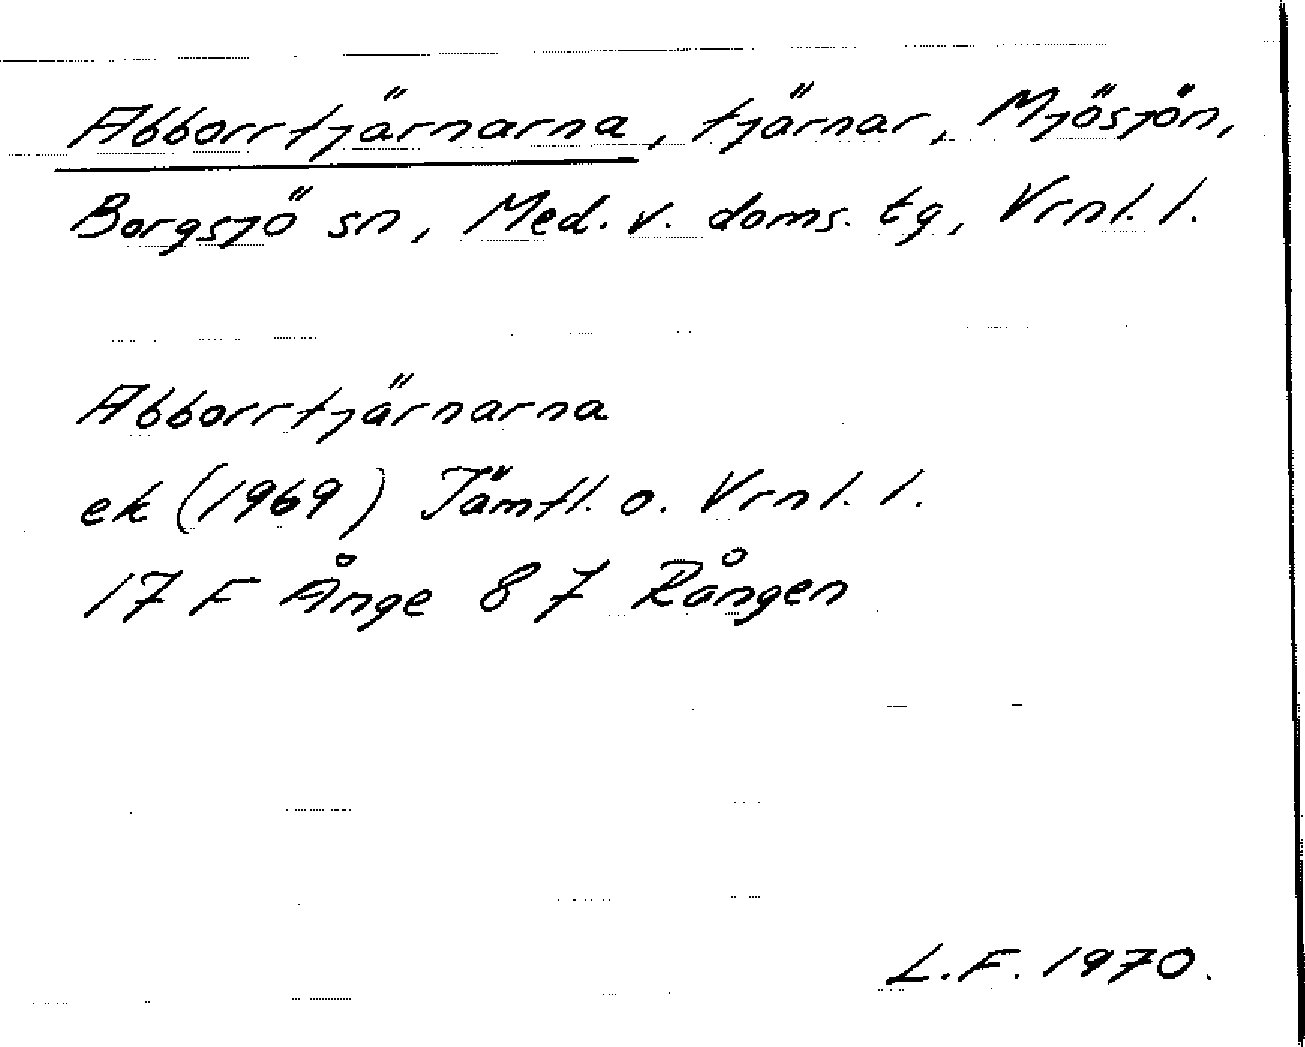 Abborrtjärnarna, tjärnar, Mjösjön,
Borgsjö sn, Med. v. doms. tg, Vrnl. l.
Abborrtjärnarna
ek (1969) Jämtl. o. Vrnl. l.
17 F Ånge 8 7 Rången
L.F. 1970.